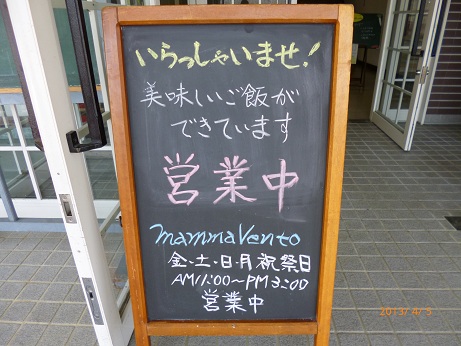 いらっしゃいませ!
美味しいご飯が
できています
営業中
mamma Vento
金・土・日・月 祝祭日
AM11:00〜PM3:00
営業中
2013/ 4/ 5